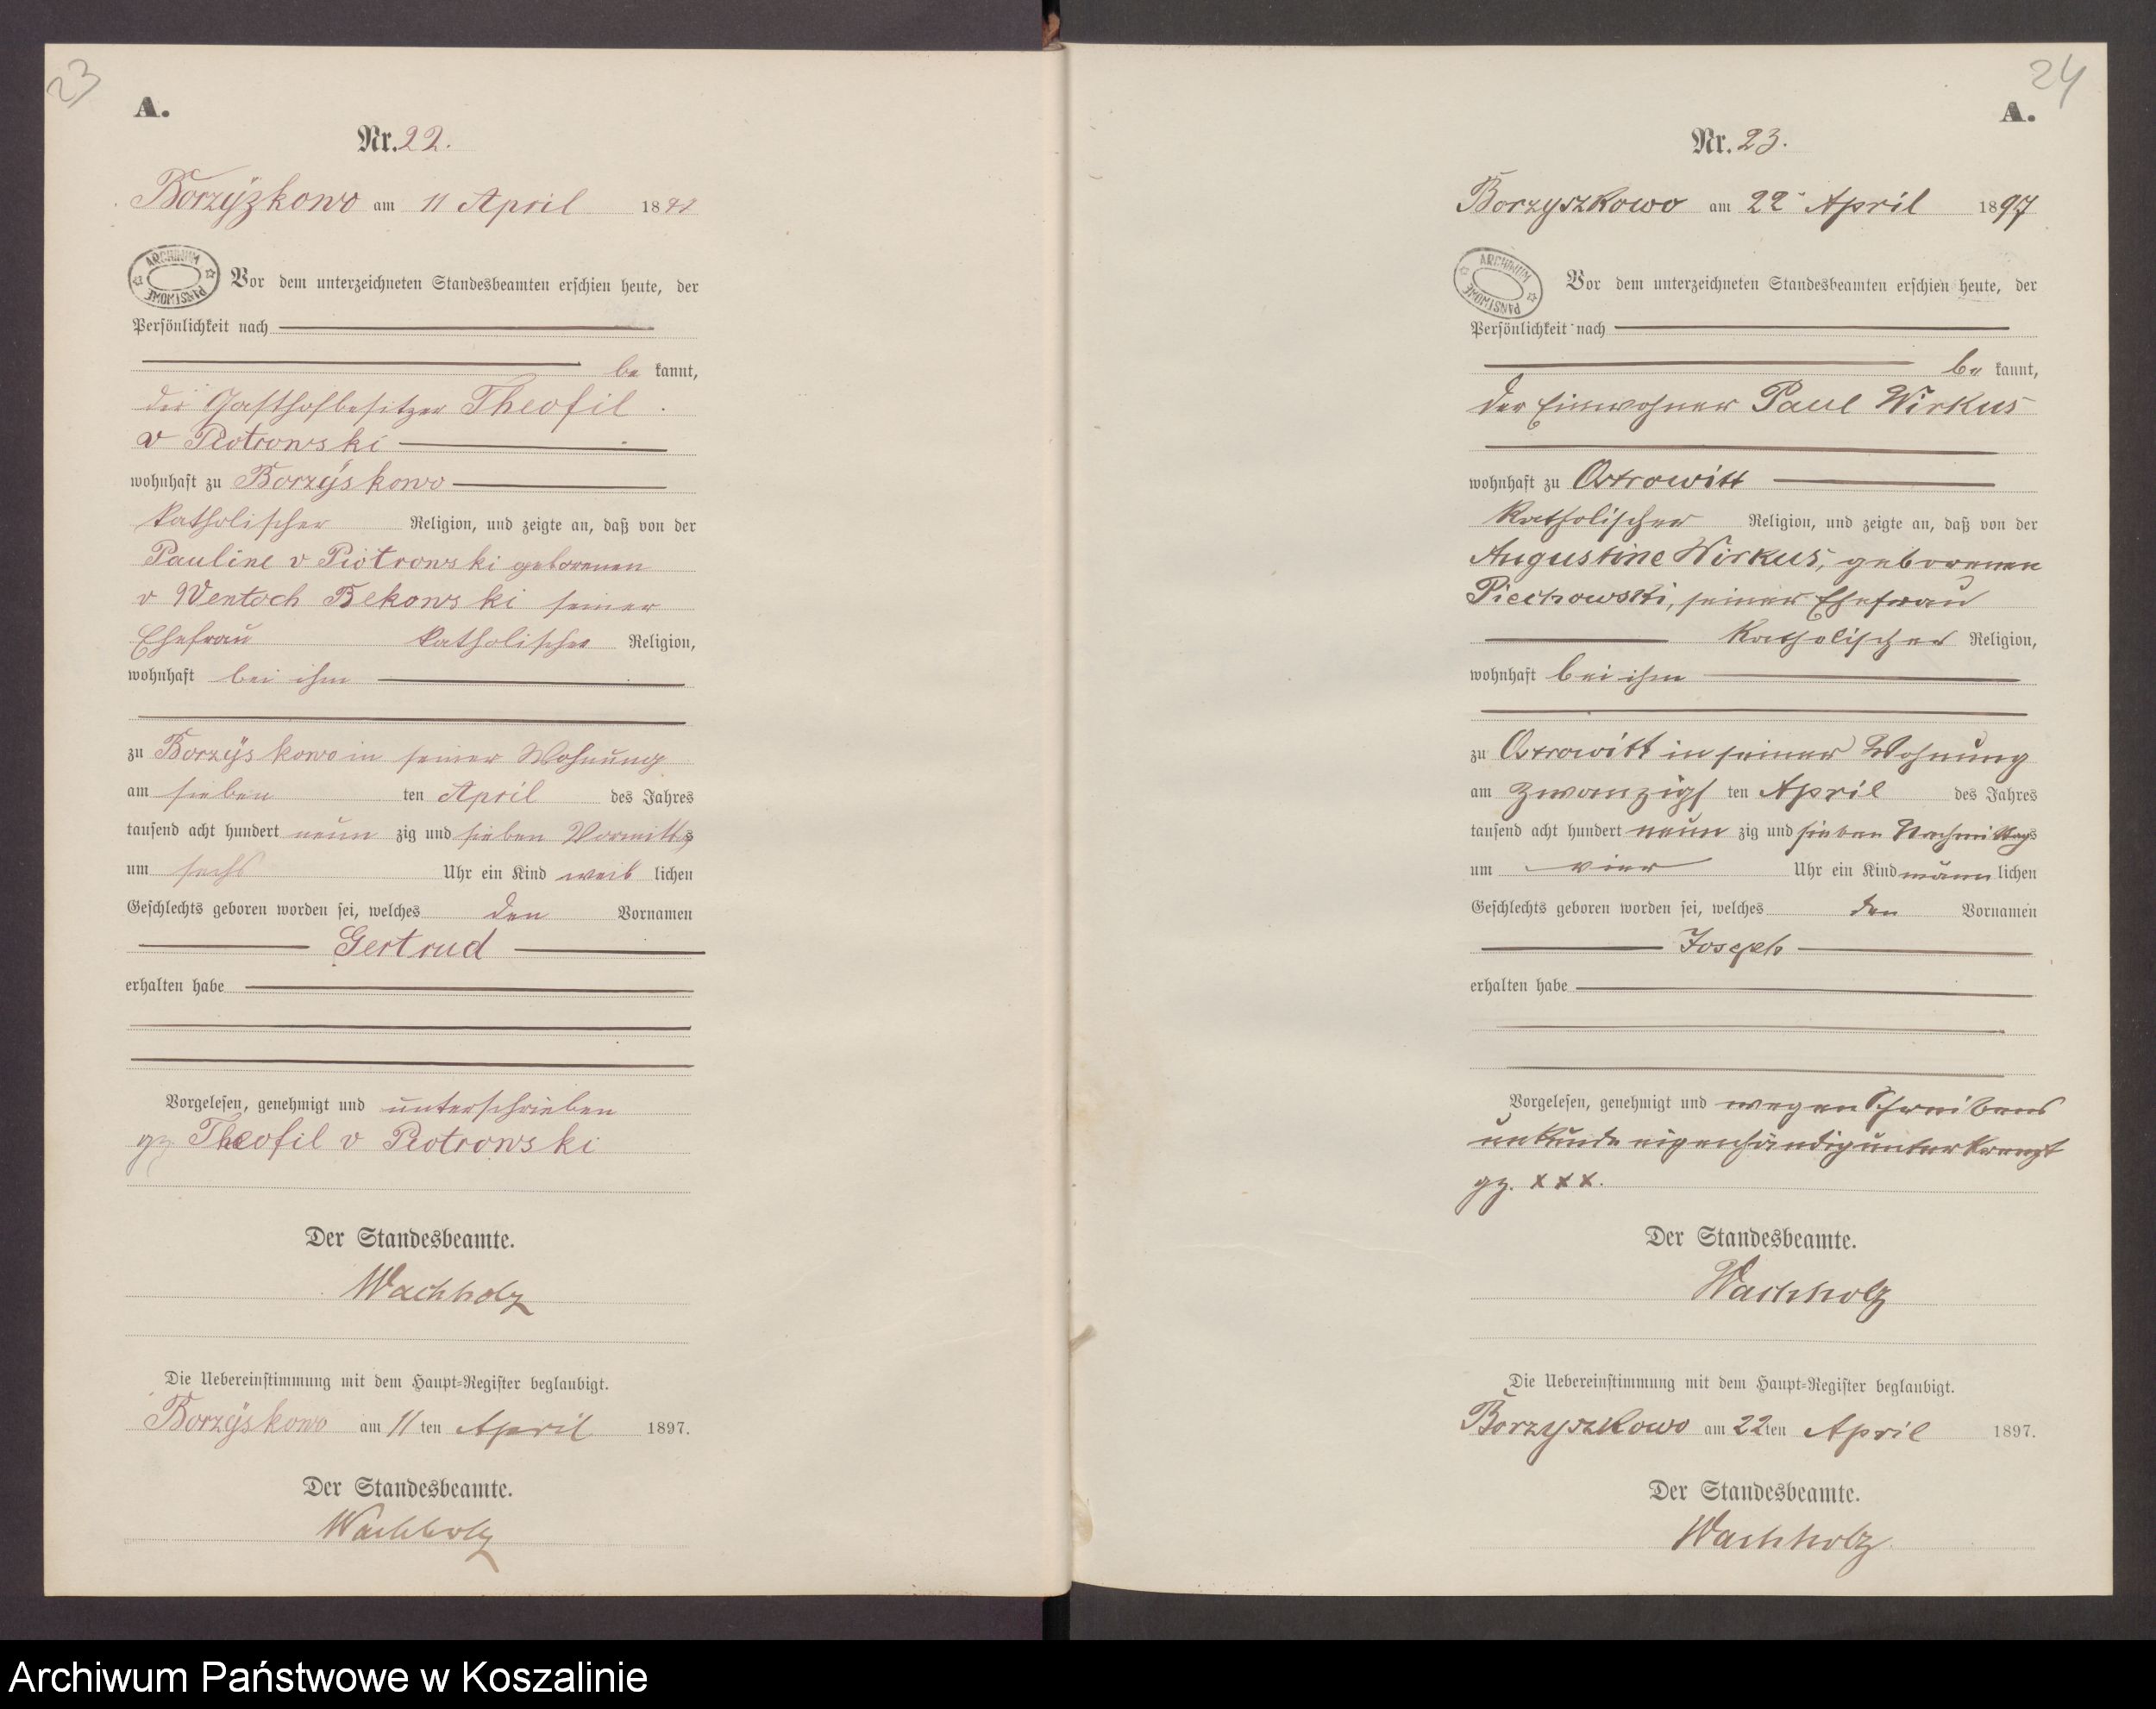 23
A.
Nr. 22.
Borzÿzkowo am 11 April 1897
ARCHIWUM PAŃSTWOWE
Vor dem unterzeichneten Standesbeamten erschien heute, der
Persönlichkeit nach
be kannt,
der Gasthofbesitzer Theofil
v Piotrowski
wohnhaft zu Borzÿskowo
katholischer Religion, und zeigte an, daß von der
Pauline v Piotrowski geborenen
v Wentoch Rekowski seiner
Ehefrau katholischer Religion,
wohnhaft bei ihm
zu Borzÿskowo in seiner Wohnung
am sieben ten April des Jahres
tausend acht hundert neun zig und sieben Vormittags
um sechs Uhr ein Kind weib lichen
Geschlechts geboren worden sei, welches den Vornamen
Gertrud
erhalten habe
Vorgelesen, genehmigt und unterschrieben
gz Theofil v Piotrowski
Der Standesbeamte.
Wachholz
Die Uebereinstimmung mit dem Haupt-Register beglaubigt.
Borzÿskowo am 11 ten April 1897.
Der Standesbeamte.
Wachholz
24
A.
Nr. 23.
Borzyszkowo am 22 April 1897
ARCHIWUM PAŃSTWOWE
Vor dem unterzeichneten Standesbeamten erschien heute, der
Persönlichkeit nach
be kannt,
der Einwohner Paul Wirkus
wohnhaft zu Ostrowitt
katholischer Religion, und zeigte an, daß von der
Augustine Wirkus, geborenen
Piechowski, seiner Ehefrau
katholischer Religion,
wohnhaft bei ihm
zu Ostrowitt in seiner Wohnung
am zwanzigs ten April des Jahres
tausend acht hundert neun zig und sieben Nachmittags
um vier Uhr ein Kind männ lichen
Geschlechts geboren worden sei, welches den Vornamen
Joseph
erhalten habe
Vorgelesen, genehmigt und wegen Schreibens
unkunde eigenhändig unterkreuzt
gz. x x x.
Der Standesbeamte.
Wachholz
Die Uebereinstimmung mit dem Haupt-Register beglaubigt.
Borzyszkowo am 22ten April 1897.
Der Standesbeamte.
Wachholz
Archiwum Państwowe w Koszalinie